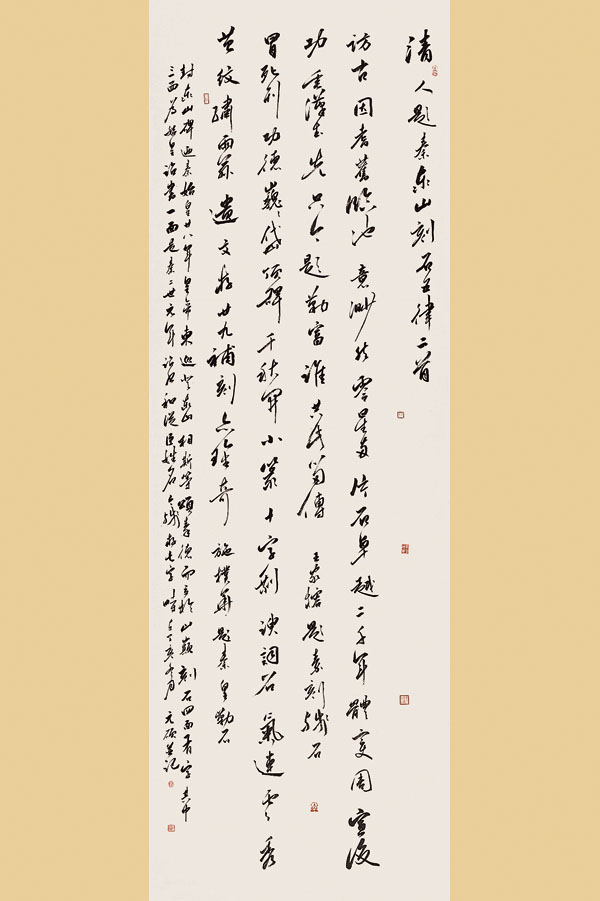 清人題秦泰山刻石五律二首
訪古因耆舊臨池意渺然零星兩片石卓越二千年體變周宣後
功垂漢代先只今題勒富誰共此留傳王家榕題秦刻殘石
冒死列功德巍巍岱頂碑千秋開小篆十字剩諛詞石氣連雲秀
苔紋繡雨滋遺文存廿九補刻亦瑰奇施樸華題秦皇勒石
封泰山碑迺秦始皇廿八年皇帝東巡登泰山相斯等頌秦德而立於山巔刻石四面有字其中
三面為始皇詔書一面是秦二世元年詔書和從臣姓名今殘存七字時在丁亥月元碩並記